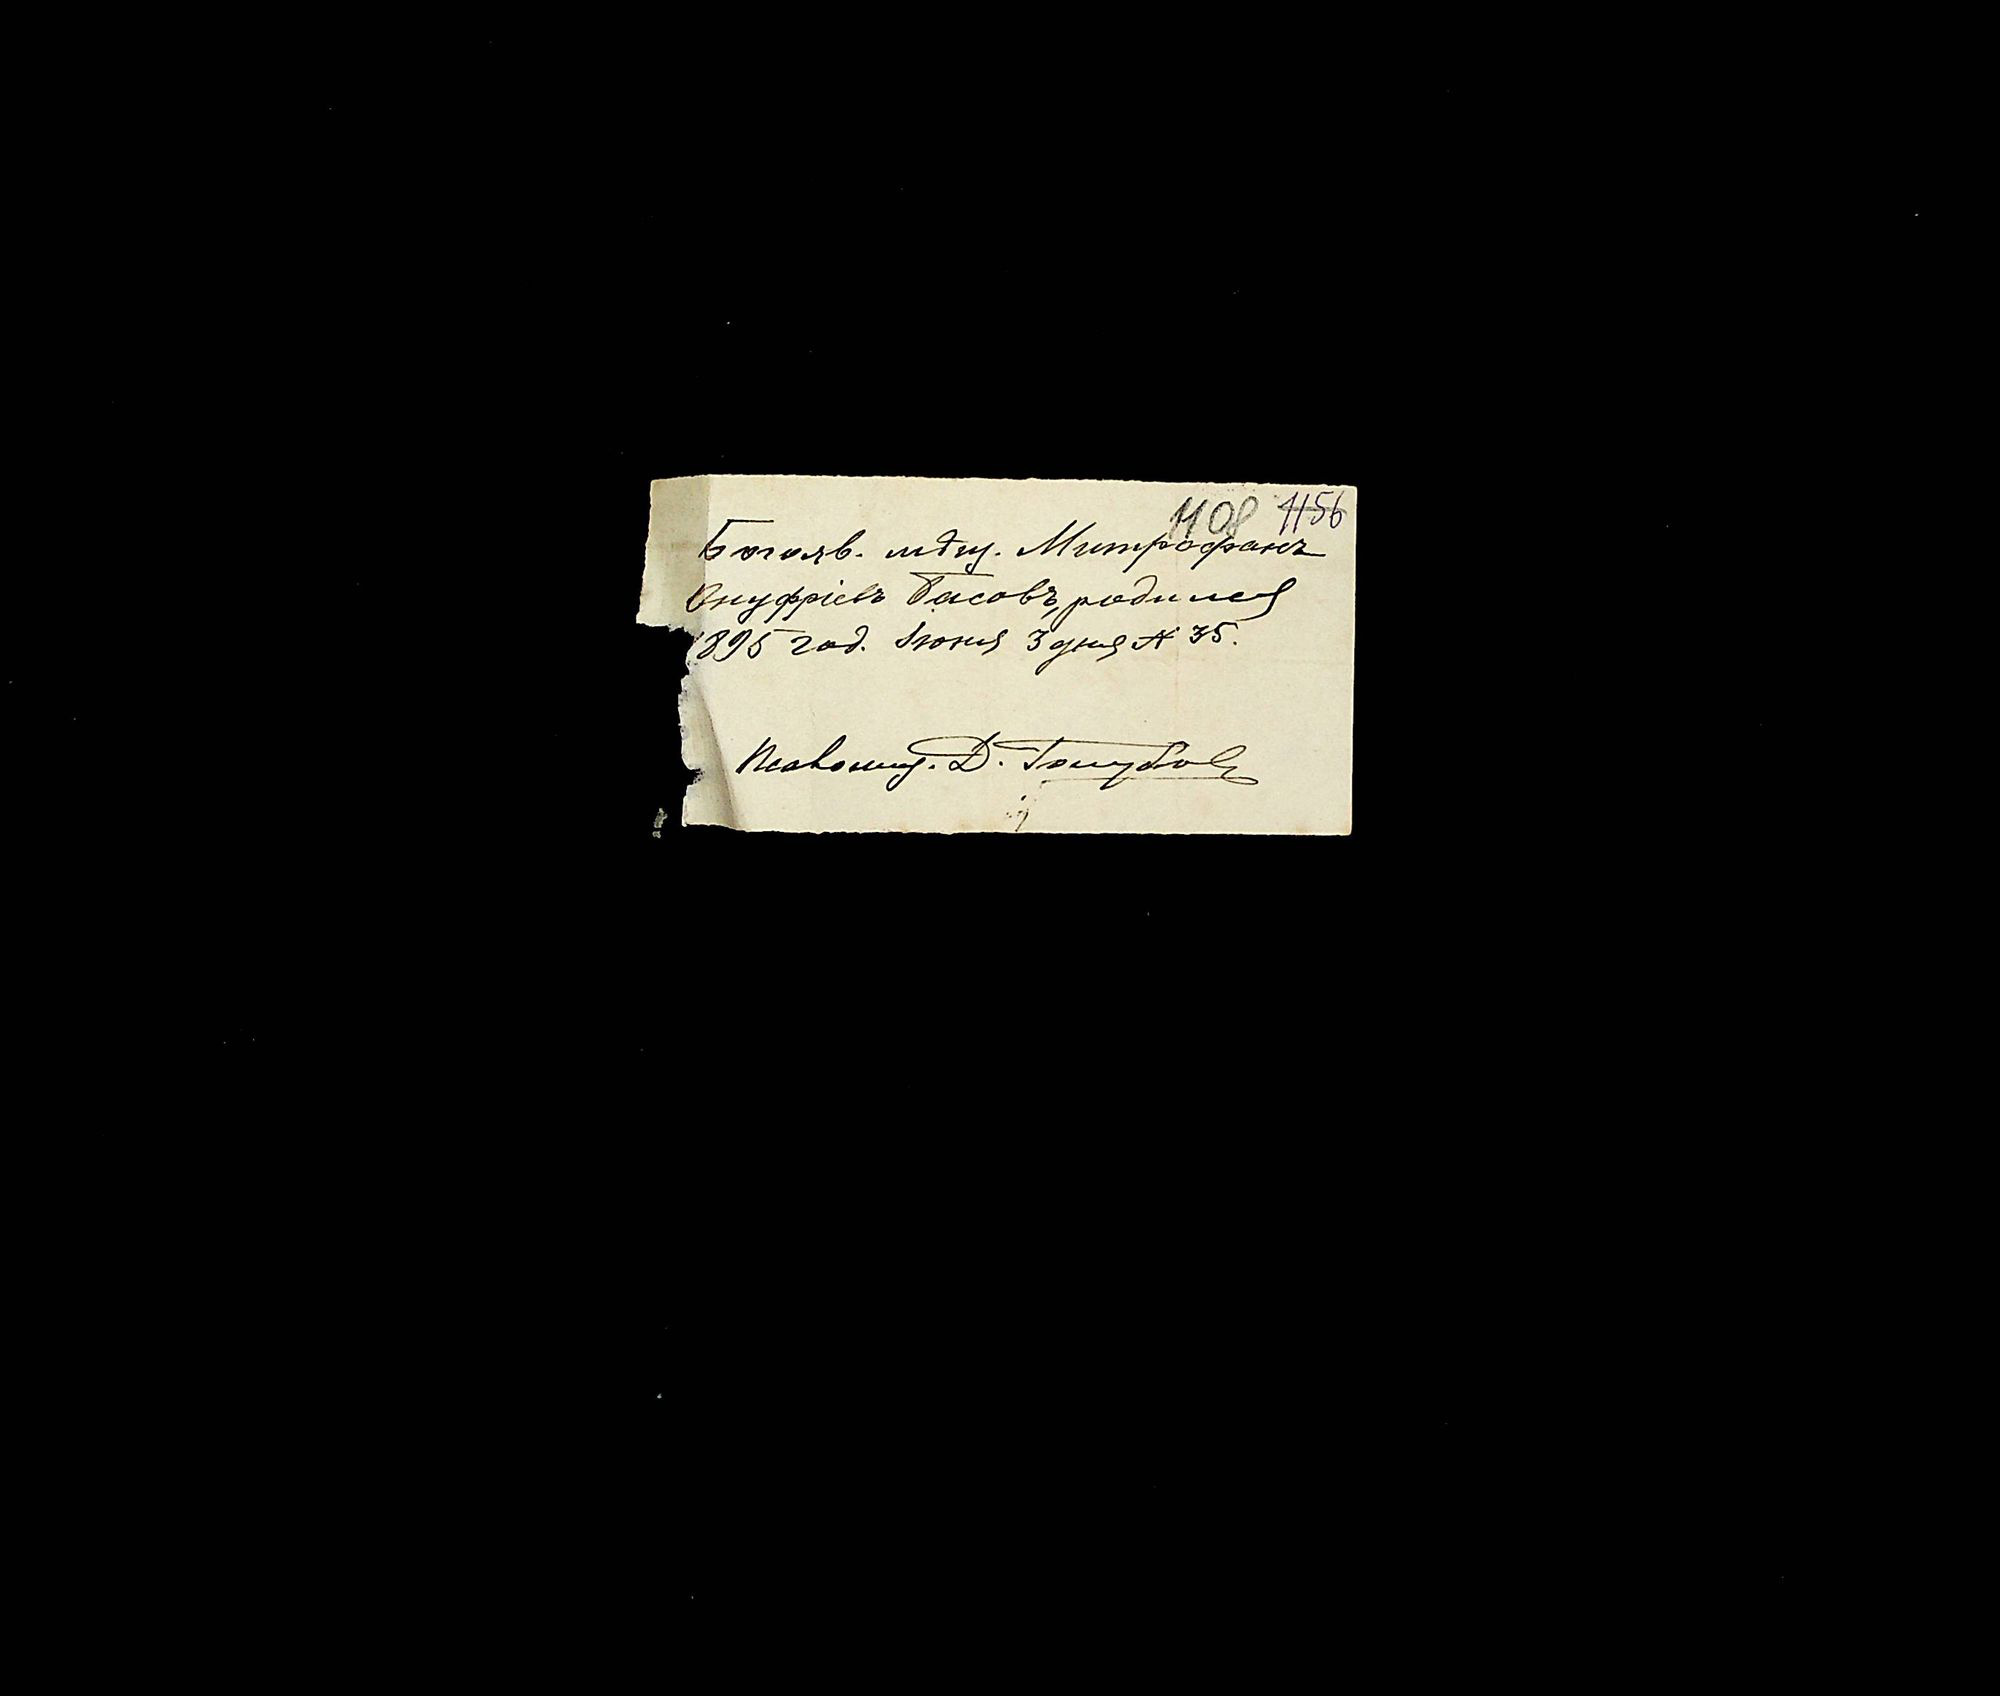 1108 1156
Богояв. мѣщ. Митрофанъ
Онуфріевъ Басовъ, родился
1895 год. Іюня 3 дня № 35.
Псаломщ. Д. Голубов